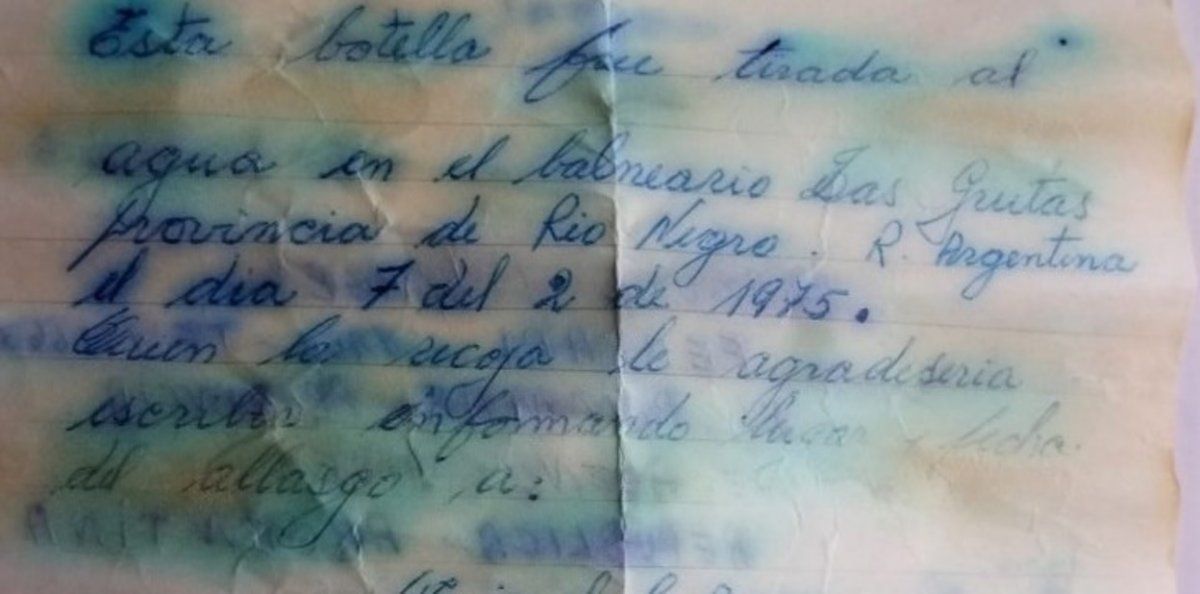 Esta botella fue tirada al
agua en el balneario Las Grutas
provincia de Rio Negro. R. Argentina
el dia 7 del 2 de 1975.
Quien la recoja le agradeseria
escribir informando lugar y fecha.
del allasgo a: